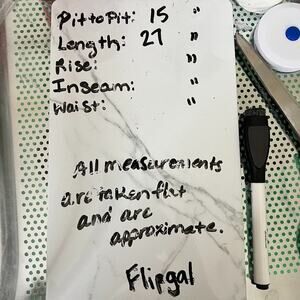 Pit to Pit: 15 "
Length: 27 "
Rise: "
Inseam: "
Waist: "
All measurements
are taken flat
and are
approximate.
Flipgal